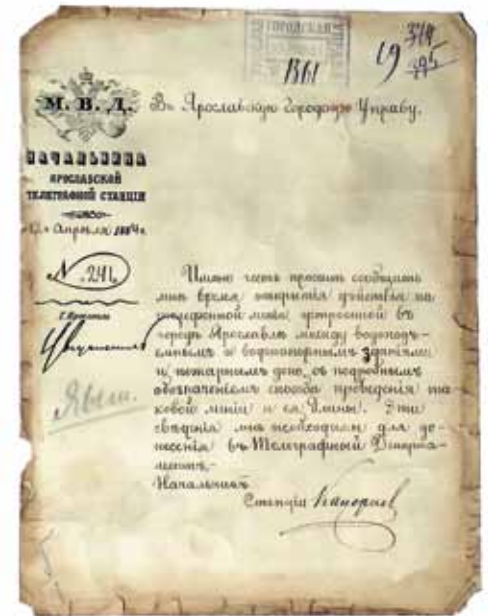 ГОРОДСКАЯ
1361
19
М. В. Д.
Въ Ярославскую Городскую Управу.
НАЧАЛЬНИКА
ЯРОСЛАВСКОЙ
ТЕЛЕГРАФНОЙ СТАНЦІИ
Апрѣля 1884 г.
N. 241
Имѣю честь просить сообщить
мнѣ время открытія дѣйствія на
телефонной линіи устроенной въ
городѣ Ярославлѣ между водоподъ-
емнымъ и водонапорнымъ зданіями
и пожарнымъ депо, съ подробнымъ
обозначеніемъ способа проведенія та-
ковой линіи и ея длины. Эти
свѣдѣнія мнѣ необходимы для до-
несенія въ Телеграфный Департа-
ментъ.
Начальникъ
Станціи